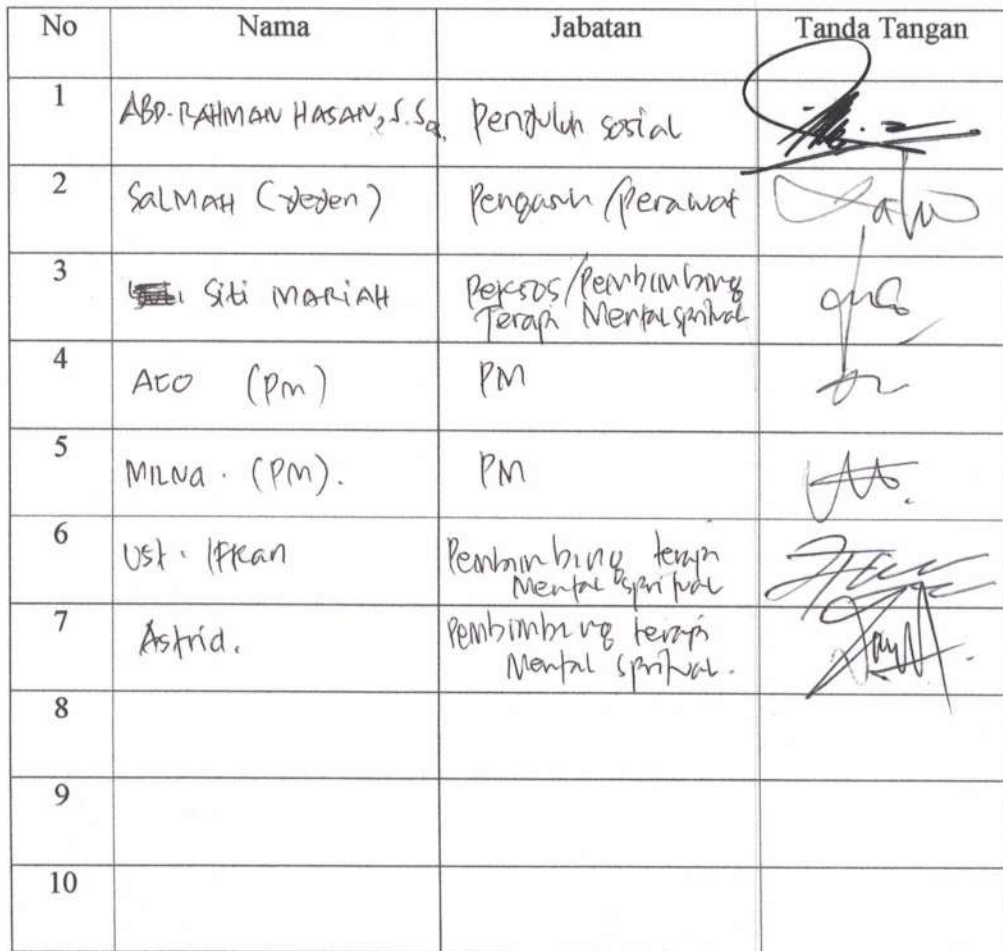 No Nama Jabatan Tanda Tangan
1 ABD. RAHMAN HASAN, S.Sos. Penyuluh sosial
2 SALMAH (yeyen) Pengasuh/perawat
3 Siti MARIAH Peksos/Pembimbing
Terapi Mental spritual
4 Aco (PM) PM
5 MILNA. (PM). PM
6 Ust. Ifkan Pembimbing terapi
Mental spritual
7 Astrid. Pembimbing terapi
Mental spritual.
8
9
10